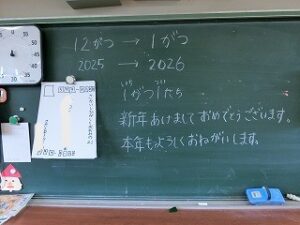 12がつ → 1がつ
2025 → 2026
1がつ1たち
新年あけましておめでとうございます。
本年もよろしくおねがいします。